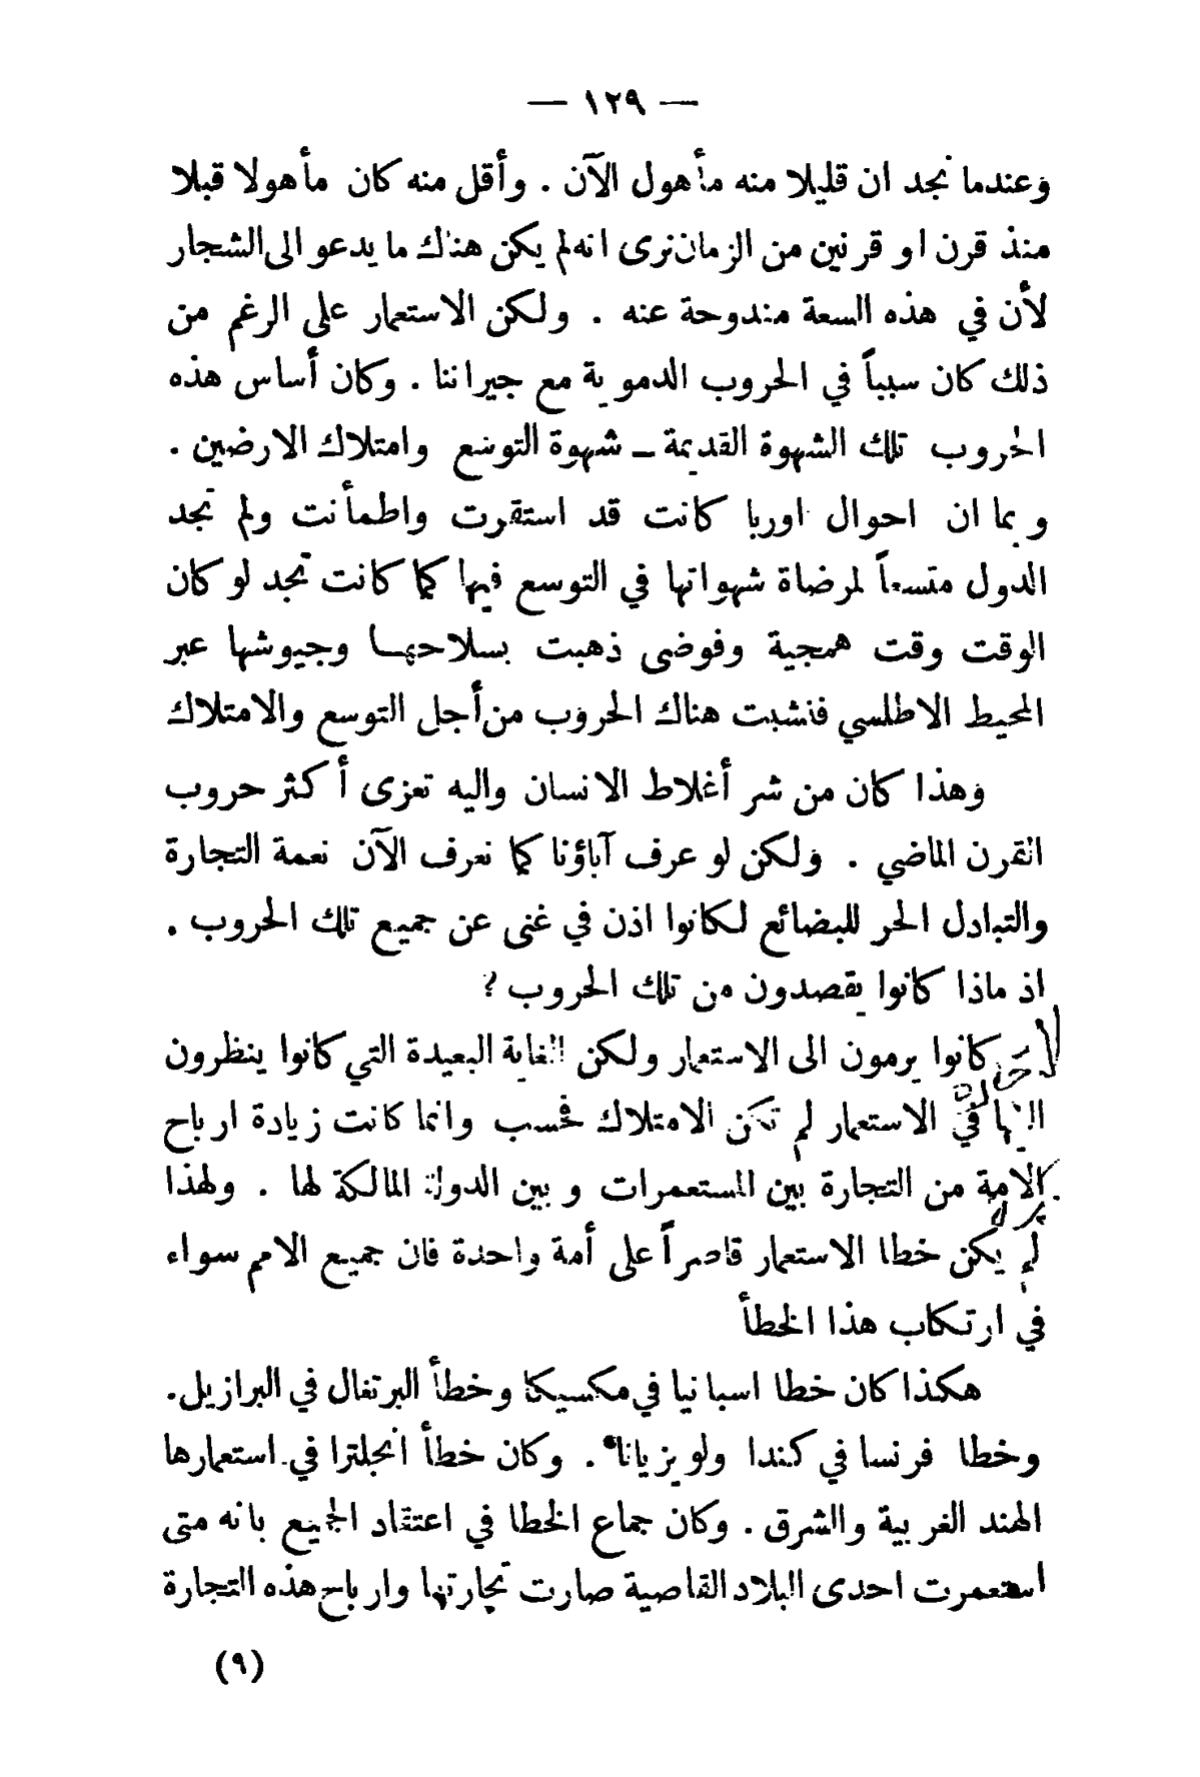 — ١٢٩ —
وعندما نجد ان قليلا منه مأهول الآن . وأقل منه كان مأهولا قبلا
منذ قرن او قرنين من الزمان نرى انه لم يكن هناك ما يدعو الى الشجار
لأن في هذه السعة مندوحة عنه . ولكن الاستعمار على الرغم من
ذلك كان سبباً في الحروب الدموية مع جيراننا . وكان أساس هذه
الحروب تلك الشهوة القديمة – شهوة التوسع وامتلاك الارضين .
وبما ان احوال اوربا كانت قد استقرت واطمأنت ولم تجد
الدول متسعاً لمرضاة شهواتها في التوسع فيها كما كانت تجد لو كان
الوقت وقت همجية وفوضى ذهبت بسلاحها وجيوشها عبر
المحيط الاطلسي فنشبت هناك الحروب من أجل التوسع والامتلاك
وهذا كان من شر أغلاط الانسان واليه تعزى أكثر حروب
القرن الماضي . ولكن لو عرف آباؤنا كما نعرف الآن نعمة التجارة
والتبادل الحر للبضائع لكانوا اذن في غنى عن جميع تلك الحروب .
اذ ماذا كانوا يقصدون من تلك الحروب ؟
كانوا يرمون الى الاستعمار ولكن الغاية البعيدة التي كانوا ينظرون
اليها في الاستعمار لم تكن الامتلاك فحسب وانما كانت زيادة ارباح
الامة من التجارة بين المستعمرات وبين الدولة المالكة لها . ولهذا
لم يكن خطا الاستعمار قاصراً على أمة واحدة فان جميع الامم سواء
في ارتكاب هذا الخطأ
هكذا كان خطا اسبانيا في مكسيكا وخطأ البرتغال في البرازيل.
وخطا فرنسا في كندا ولويزيانا . وكان خطأ انجلترا في استعمارها
الهند الغربية والشرق . وكان جماع الخطا في اعتقاد الجميع بانه متى
استعمرت احدى البلاد القاصية صارت تجارتها وارباح هذه التجارة
(٩)